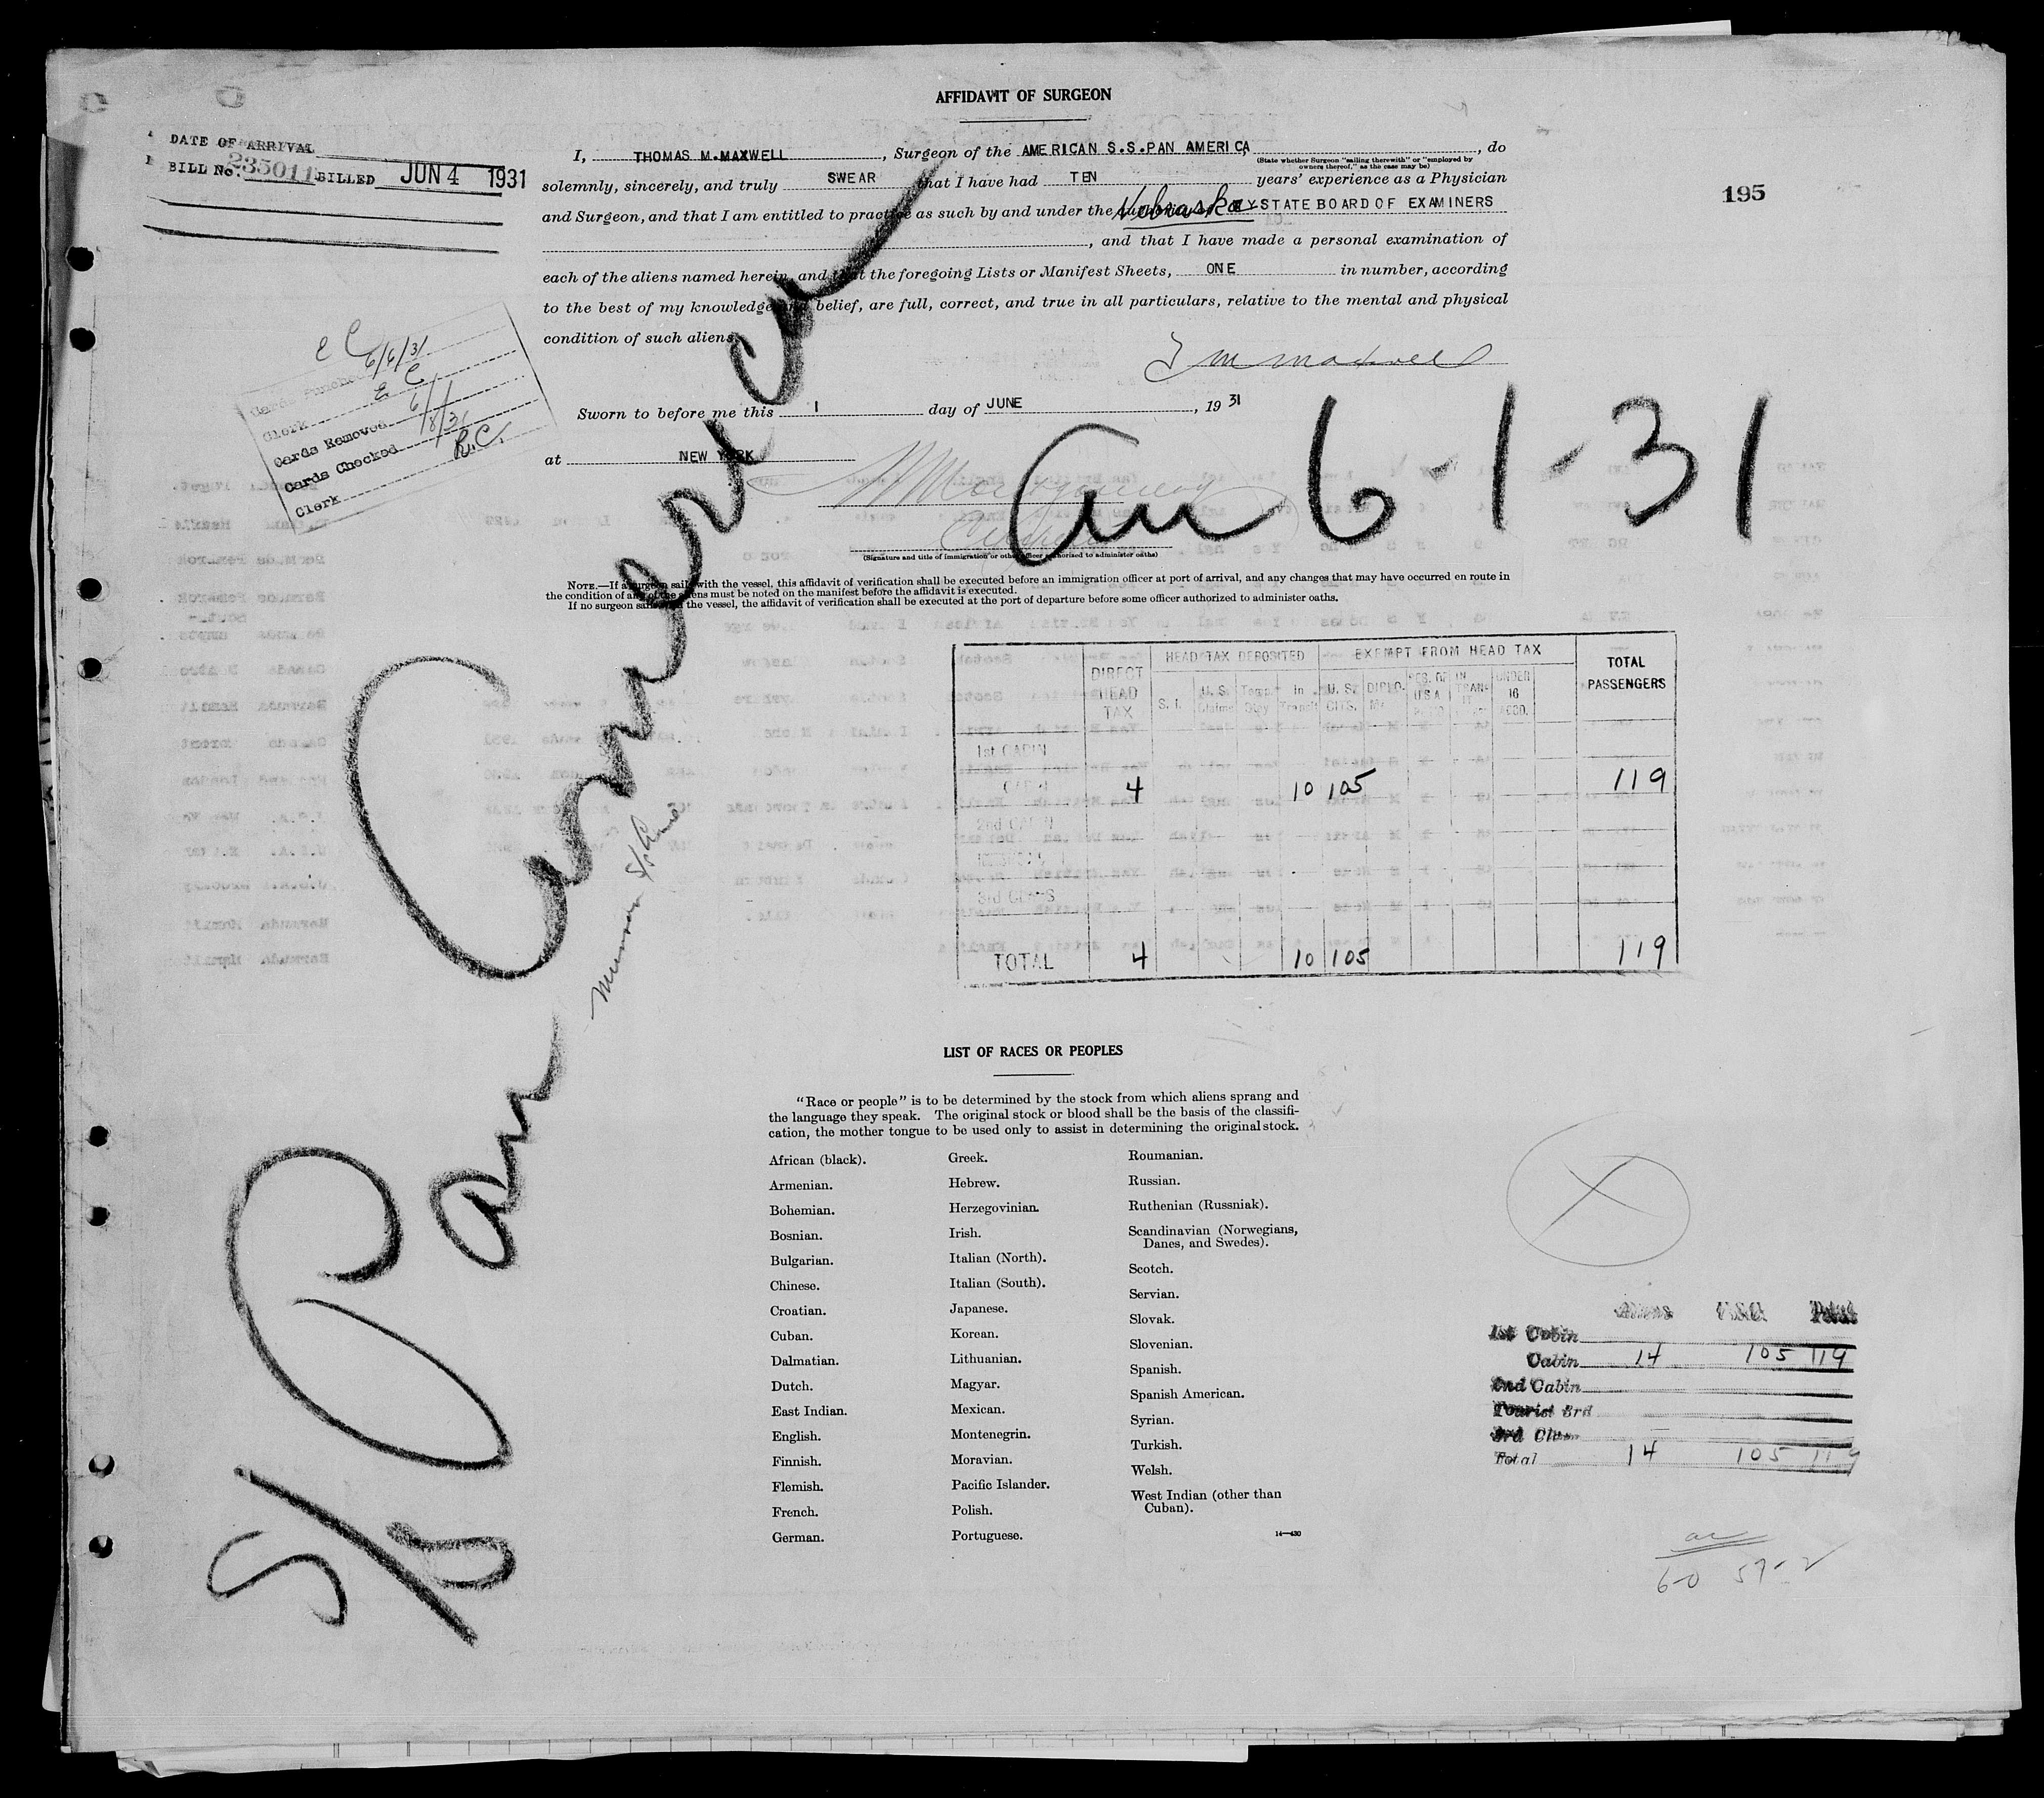 AFFIDAVIT OF SURGEON
DATE OF ARRIVAL
BILL No. 235011 BILLED JUN 4 1931
195
I, THOMAS M.MAXWELL, Surgeon of the AMERICAN S.S.PAN AMERICA, do
(State whether Surgeon "sailing therewith" or "employed by
owners thereof," as the case may be)
solemnly, sincerely, and truly SWEAR that I have had TEN years' experience as a Physician
and Surgeon, and that I am entitled to practice as such by and under the Nebraska STATE BOARD OF EXAMINERS
, and that I have made a personal examination of
each of the aliens named herein, and that the foregoing Lists or Manifest Sheets, ONE in number, according
to the best of my knowledge and belief, are full, correct, and true in all particulars, relative to the mental and physical
condition of such aliens.
T M Maxwell
Sworn to before me this 1 day of JUNE, 19 31
at NEW YORK
(Signature and title of immigration or other officer authorized to administer oaths)
E C 6/6/31
Cards Punched
Clerk E C
Cards Removed 6/8/31
Cards Checked
Clerk R.C.
6-1-31
S/S Pan America
Munson St. Line
NOTE.—If a surgeon sails with the vessel, this affidavit of verification shall be executed before an immigration officer at port of arrival, and any changes that may have occurred en route in
the condition of any of the aliens must be noted on the manifest before the affidavit is executed.
If no surgeon sails with the vessel, the affidavit of verification shall be executed at the port of departure before some officer authorized to administer oaths.
DIRECT HEAD TAX
HEAD TAX DEPOSITED
EXEMPT FROM HEAD TAX
TOTAL PASSENGERS
S. I. U. S. Claims Temp. Stay In Transit U. S. CITS. DIPLO. UNDER 16 ACCO.
1st CABIN
CABIN 4 10 105 119
2nd CABIN
3rd CLASS
TOTAL 4 10 105 119
LIST OF RACES OR PEOPLES
"Race or people" is to be determined by the stock from which aliens sprang and
the language they speak. The original stock or blood shall be the basis of the classifi-
cation, the mother tongue to be used only to assist in determining the original stock.
African (black).
Armenian.
Bohemian.
Bosnian.
Bulgarian.
Chinese.
Croatian.
Cuban.
Dalmatian.
Dutch.
East Indian.
English.
Finnish.
Flemish.
French.
German.
Greek.
Hebrew.
Herzegovinian.
Irish.
Italian (North).
Italian (South).
Japanese.
Korean.
Lithuanian.
Magyar.
Mexican.
Montenegrin.
Moravian.
Pacific Islander.
Polish.
Portuguese.
Roumanian.
Russian.
Ruthenian (Russniak).
Scandinavian (Norwegians,
Danes, and Swedes).
Scotch.
Servian.
Slovak.
Slovenian.
Spanish.
Spanish American.
Syrian.
Turkish.
Welsh.
West Indian (other than
Cuban).
14—430
Aliens U.S.C. Total
1st Cabin
Cabin 14 105 119
2nd Cabin
Tourist 3rd
3rd Class
Total 14 105 119